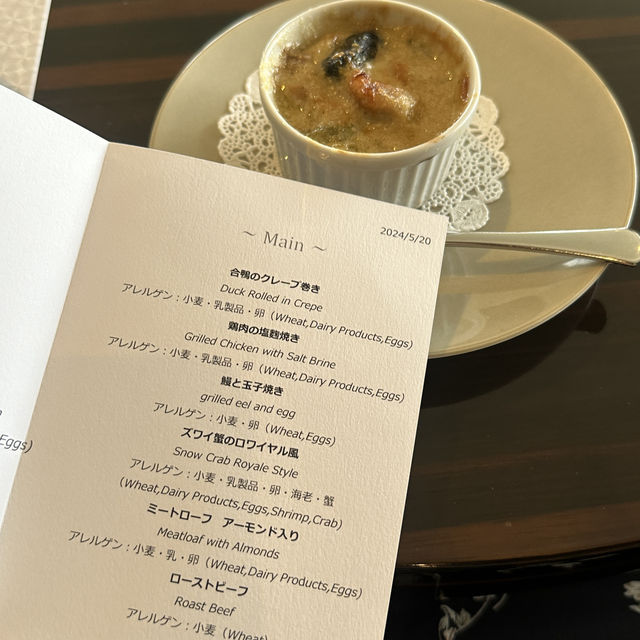 2024/5/20
~ Main ~
合鴨のクレープ巻き
Duck Rolled in Crepe
アレルゲン：小麦・乳製品・卵（Wheat,Dairy Products,Eggs)
鶏肉の塩麴焼き
Grilled Chicken with Salt Brine
アレルゲン：小麦・乳製品・卵（Wheat,Dairy Products,Eggs)
鰻と玉子焼き
grilled eel and egg
アレルゲン：小麦・卵（Wheat,Eggs)
ズワイ蟹のロワイヤル風
Snow Crab Royale Style
アレルゲン：小麦・乳製品・卵・海老・蟹
（Wheat,Dairy Products,Eggs,Shrimp,Crab)
ミートローフ　アーモンド入り
Meatloaf with Almonds
アレルゲン：小麦・乳・卵（Wheat,Dairy Products,Eggs)
ローストビーフ
Roast Beef
アレルゲン：小麦（Wheat)
Eggs)